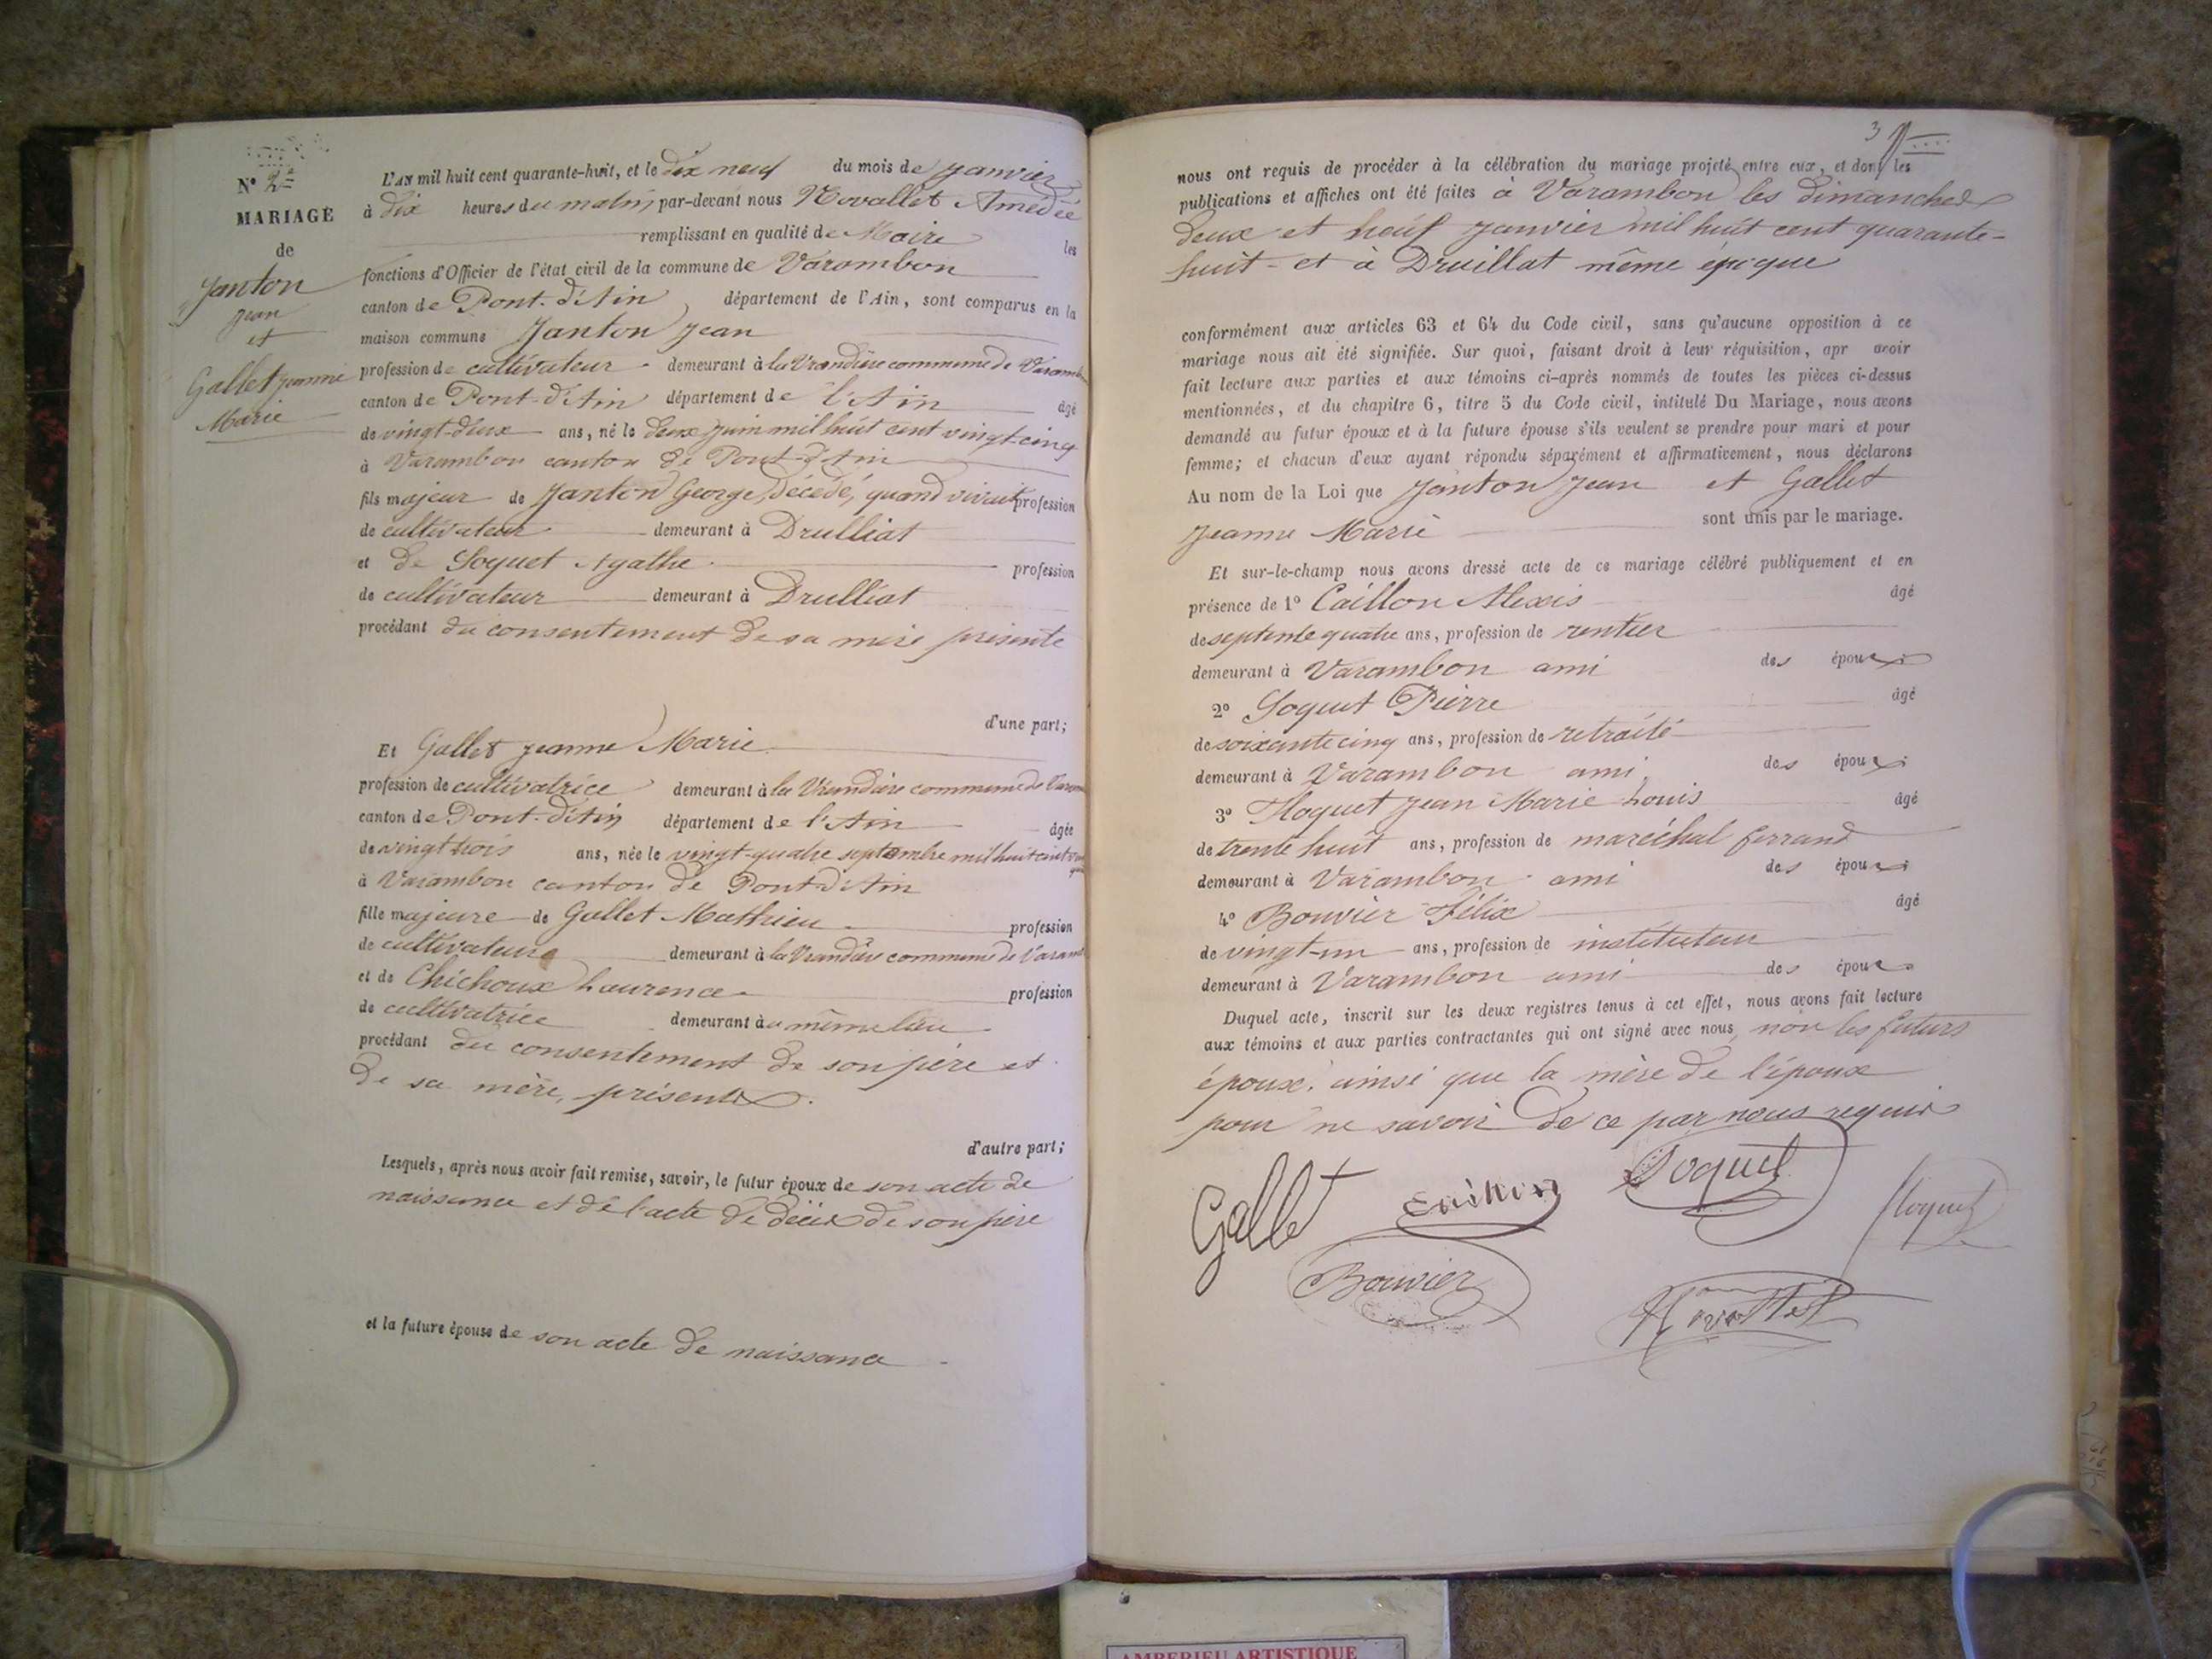 N° 2
MARIAGE
de
Janton
Jean
et
Gallet Jeanne
Marie
L'AN mil huit cent quarante-huit, et le dix neuf du mois de Janvier
à dix heures du matin, par-devant nous Novallet Amédée
remplissant en qualité de Maire les
fonctions d'Officier de l'état civil de la commune de Varambon
canton de Pont-d'Ain, département de l'Ain, sont comparus en la
maison commune Janton Jean
profession de cultivateur demeurant à la Vrandière commune de Varambon
canton de Pont-d'Ain département de l'Ain âgé
de vingt-deux ans, né le deux Juin mil huit cent vingt-cinq
à Varambon canton de Pont-d'Ain
fils majeur de Janton George, Décédé, quand vivait profession
de cultivateur demeurant à Drulliat
et de Soquet Agathe profession
de cultivateur demeurant à Drulliat
procédant du consentement de sa mère présente
d'une part;
Et Gallet Jeanne Marie
profession de cultivatrice demeurant à la Vrandière commune de
canton de Pont-d'Ain département de l'Ain âgée
de vingt trois ans, née le vingt-quatre septembre mil huit cent
à Varambon canton de Pont-d'Ain
fille majeure de Gallet Mathieu profession
de cultivateur demeurant à la Vrandière commune de
et de Chichoux Laurence profession
de cultivatrice demeurant au même lieu
procédant du consentement de son père et
de sa mère, présents.
d'autre part;
Lesquels, après nous avoir fait remise, savoir, le futur époux de son acte de
naissance et de l'acte de décès de son père
et la future épouse de son acte de naissance
3
nous ont requis de procéder à la célébration du mariage projeté entre eux, et dont les
publications et affiches ont été faites à Varambon les dimanches
deux et neuf Janvier mil huit cent quarante-
huit et à Druillat même époque
conformément aux articles 63 et 64 du Code civil, sans qu'aucune opposition à ce
mariage nous ait été signifiée. Sur quoi, faisant droit à leur réquisition, apr avoir
fait lecture aux parties et aux témoins ci-après nommés de toutes les pièces ci-dessus
mentionnées, et du chapitre 6, titre 5 du Code civil, intitulé Du Mariage, nous avons
demandé au futur époux et à la future épouse s'ils veulent se prendre pour mari et pour
femme; et chacun d'eux ayant répondu séparément et affirmativement, nous déclarons
Au nom de la Loi que Janton Jean et Gallet
Jeanne Marie sont unis par le mariage.
Et sur-le-champ nous avons dressé acte de ce mariage célébré publiquement et en
présence de 1° Caillon Alexis âgé
de septente quatre ans, profession de rentier
demeurant à Varambon ami des époux
2° Soquet Pierre âgé
de soixante cinq ans, profession de retraité
demeurant à Varambon ami des époux
3° Floquet Jean Marie Louis âgé
de trente huit ans, profession de maréchal ferrand
demeurant à Varambon ami des époux
4° Bouvier Félix âgé
de vingt-un ans, profession de instituteur
demeurant à Varambon ami des époux
Duquel acte, inscrit sur les deux registres tenus à cet effet, nous avons fait lecture
aux témoins et aux parties contractantes qui ont signé avec nous, non les futurs
époux, ainsi que la mère de l'époux
pour ne savoir de ce par nous requis
Gallet Caillon Soquet Floquet
Bouvier Novallet
AMBERIEU ARTISTIQUE